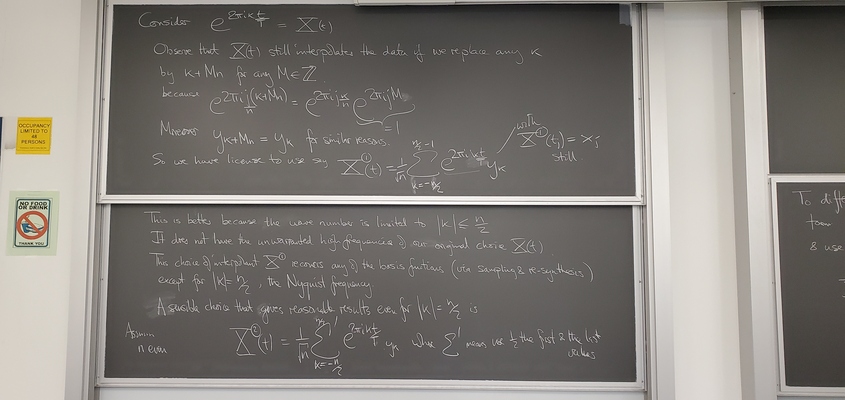 Consider e^{2πikt/T} = X(t)
Observe that X(t) still interpolates the data if we replace any k
by k+Mn for any M∈Z
because e^{2πij(k+Mn)/n} = e^{2πijk/n} e^{2πijM}
= 1
Moreover y_{k+Mn} = y_k for similar reasons.
So we have license to use say X^①(t) = 1/√n Σ_{k=-n/2}^{n/2-1} e^{2πikt/T} y_k
with
X^①(t_j) = x_j
still
This is better because the wave number is limited to |k| ≤ n/2
It does not have the unwarranted high frequencies of our original choice X(t)
This choice of interpolant X^① recovers any of the basis functions (via sampling & re-synthesis)
except for |k| = n/2, the Nyquist frequency.
A sensible choice that gives reasonable results even for |k| = n/2 is
Assum
n even
X^②(t) = 1/√n Σ'_{k=-n/2}^{n/2} e^{2πikt/T} y_k where Σ' means use 1/2 the first & the last
values
To diffe
& use
OCCUPANCY
LIMITED TO
48
PERSONS
NO FOOD
OR DRINK
THANK YOU